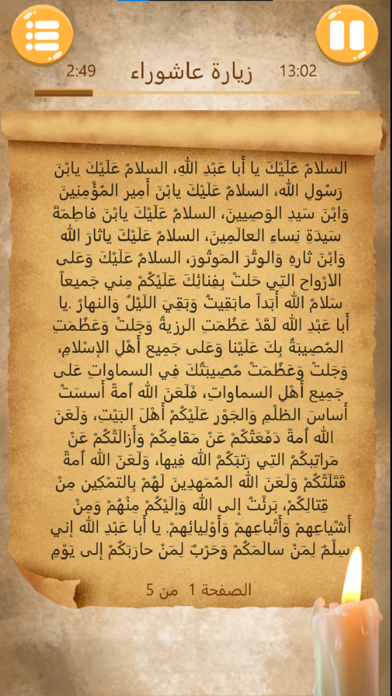 2:49
زيارة عاشوراء
13:02
السلامُ عَلَيْكَ يا أَبا عَبْدِ اللهِ، السلامُ عَلَيْكَ يابْنَ
رَسُولِ الله، السلامُ عَلَيْكَ يابْنَ أَمِيرِ المُؤْمِنِينَ
وَابْنَ سَيدِ الوَصِيينَ، السلامُ عَلَيْكَ يابْنَ فاطِمَةَ
سَيدَةِ نِساءِ العالَمِينَ، السلامُ عَلَيْكَ ياثارَ الله
وَابْنَ ثارِهِ وَالوتْرَ المَوتُورَ، السلامُ عَلَيْكَ وَعَلى
الأَرْواحِ التِي حَلتْ بِفِنائِكَ عَلَيْكُمْ مِني جَميعاً
سَلامُ الله أَبَداً مابَقِيتُ وَبَقِيَ اللَيْلُ وَالنهارُ .يا
أَبا عَبْدِ الله لَقَدْ عَظُمَتِ الرزِيةُ وَجَلتْ وَعَظُمَتِ
المُصِيبَةُ بِكَ عَلَيْنا وَعَلى جَمِيعِ أَهْلِ الإسْلامِ،
وَجَلتْ وَعَظُمَتْ مُصِيبَتُكَ فِي السماواتِ عَلى
جَمِيعِ أَهْلِ السماواتِ، فَلَعَنَ الله اُمةً أَسسَتْ
أَساسَ الظُلْمِ وَالجَوْرِ عَلَيْكُمْ أَهْلَ البَيْتِ، وَلَعَنَ
الله اُمةً دَفَعَتْكُمْ عَنْ مَقامِكُمْ وَأَزالَتْكُمْ عَنْ
مَراتِبكُمُ التِي رَتبَكُمْ الله فِيها، وَلَعَنَ الله اُمةً
قَتَلَتْكُمْ وَلَعَنَ الله المُمَهدِينَ لَهُمْ بِالتمْكِينِ مِنْ
قِتالِكُمْ، بَرِئْتُ إِلى الله وَإِلَيْكُمْ مِنْهُمْ وَمِنْ
أَشْياعِهِمْ وَأَتْباعِهِمْ وَأَوْلِيائِهِمْ. يا أَبا عَبْدِ الله إِني
سِلْمٌ لِمَنْ سالَمَكُمْ وَحَرْبٌ لِمَنْ حارَبَكُمْ إِلى يَوْمِ
الصفحة 1 من 5